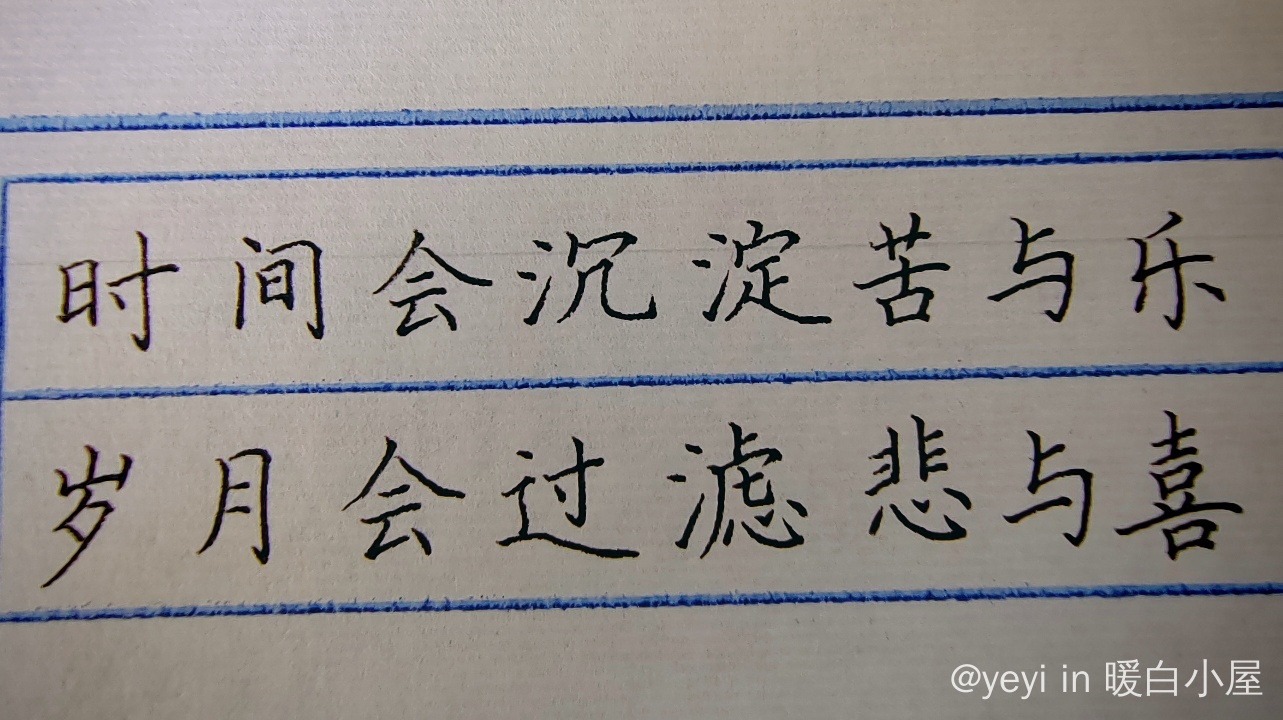 时间会沉淀苦与乐
岁月会过滤悲与喜
@yeyi in 暖白小屋